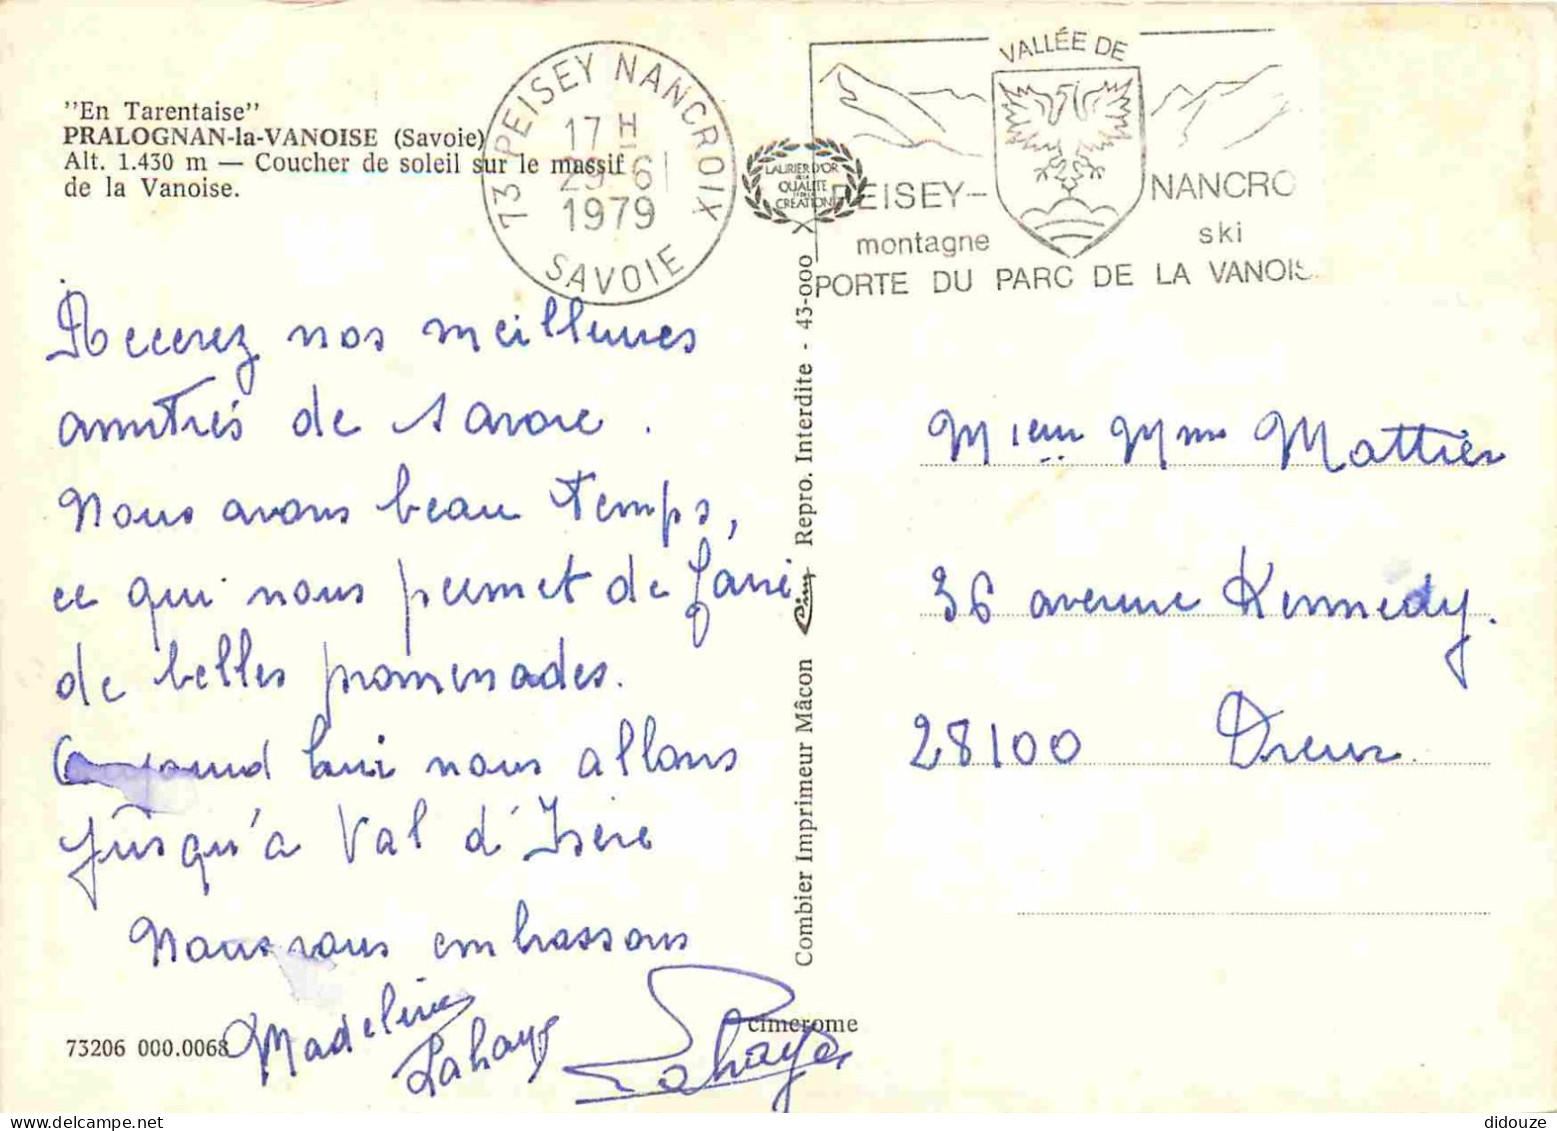 "En Tarentaise"
PRALOGNAN-la-VANOISE (Savoie)
Alt. 1.430 m — Coucher de soleil sur le massif
de la Vanoise.
73 PEISEY NANCROIX
17 H
29-6
1979
SAVOIE
LAURIER D'OR
DE LA
QUALITÉ
CREATION
VALLÉE DE
PEISEY- NANCRO
montagne ski
PORTE DU PARC DE LA VANOIS
Recevez nos meilleures
amitiés de Savoie.
Nous avons beau temps,
ce qui nous permet de faire
de belles promenades.
lui nous allons
jusqu'à Val d'Isère
Nous vous embrassons
Madeleine
Lahaye
Lahaye
73206 000.0068
cimerome
Combier Imprimeur Mâcon Cim Repro. Interdite - 43-000
M ieur Mme Mattier
36 avenue Kennedy.
28100 Dreux.
didouze